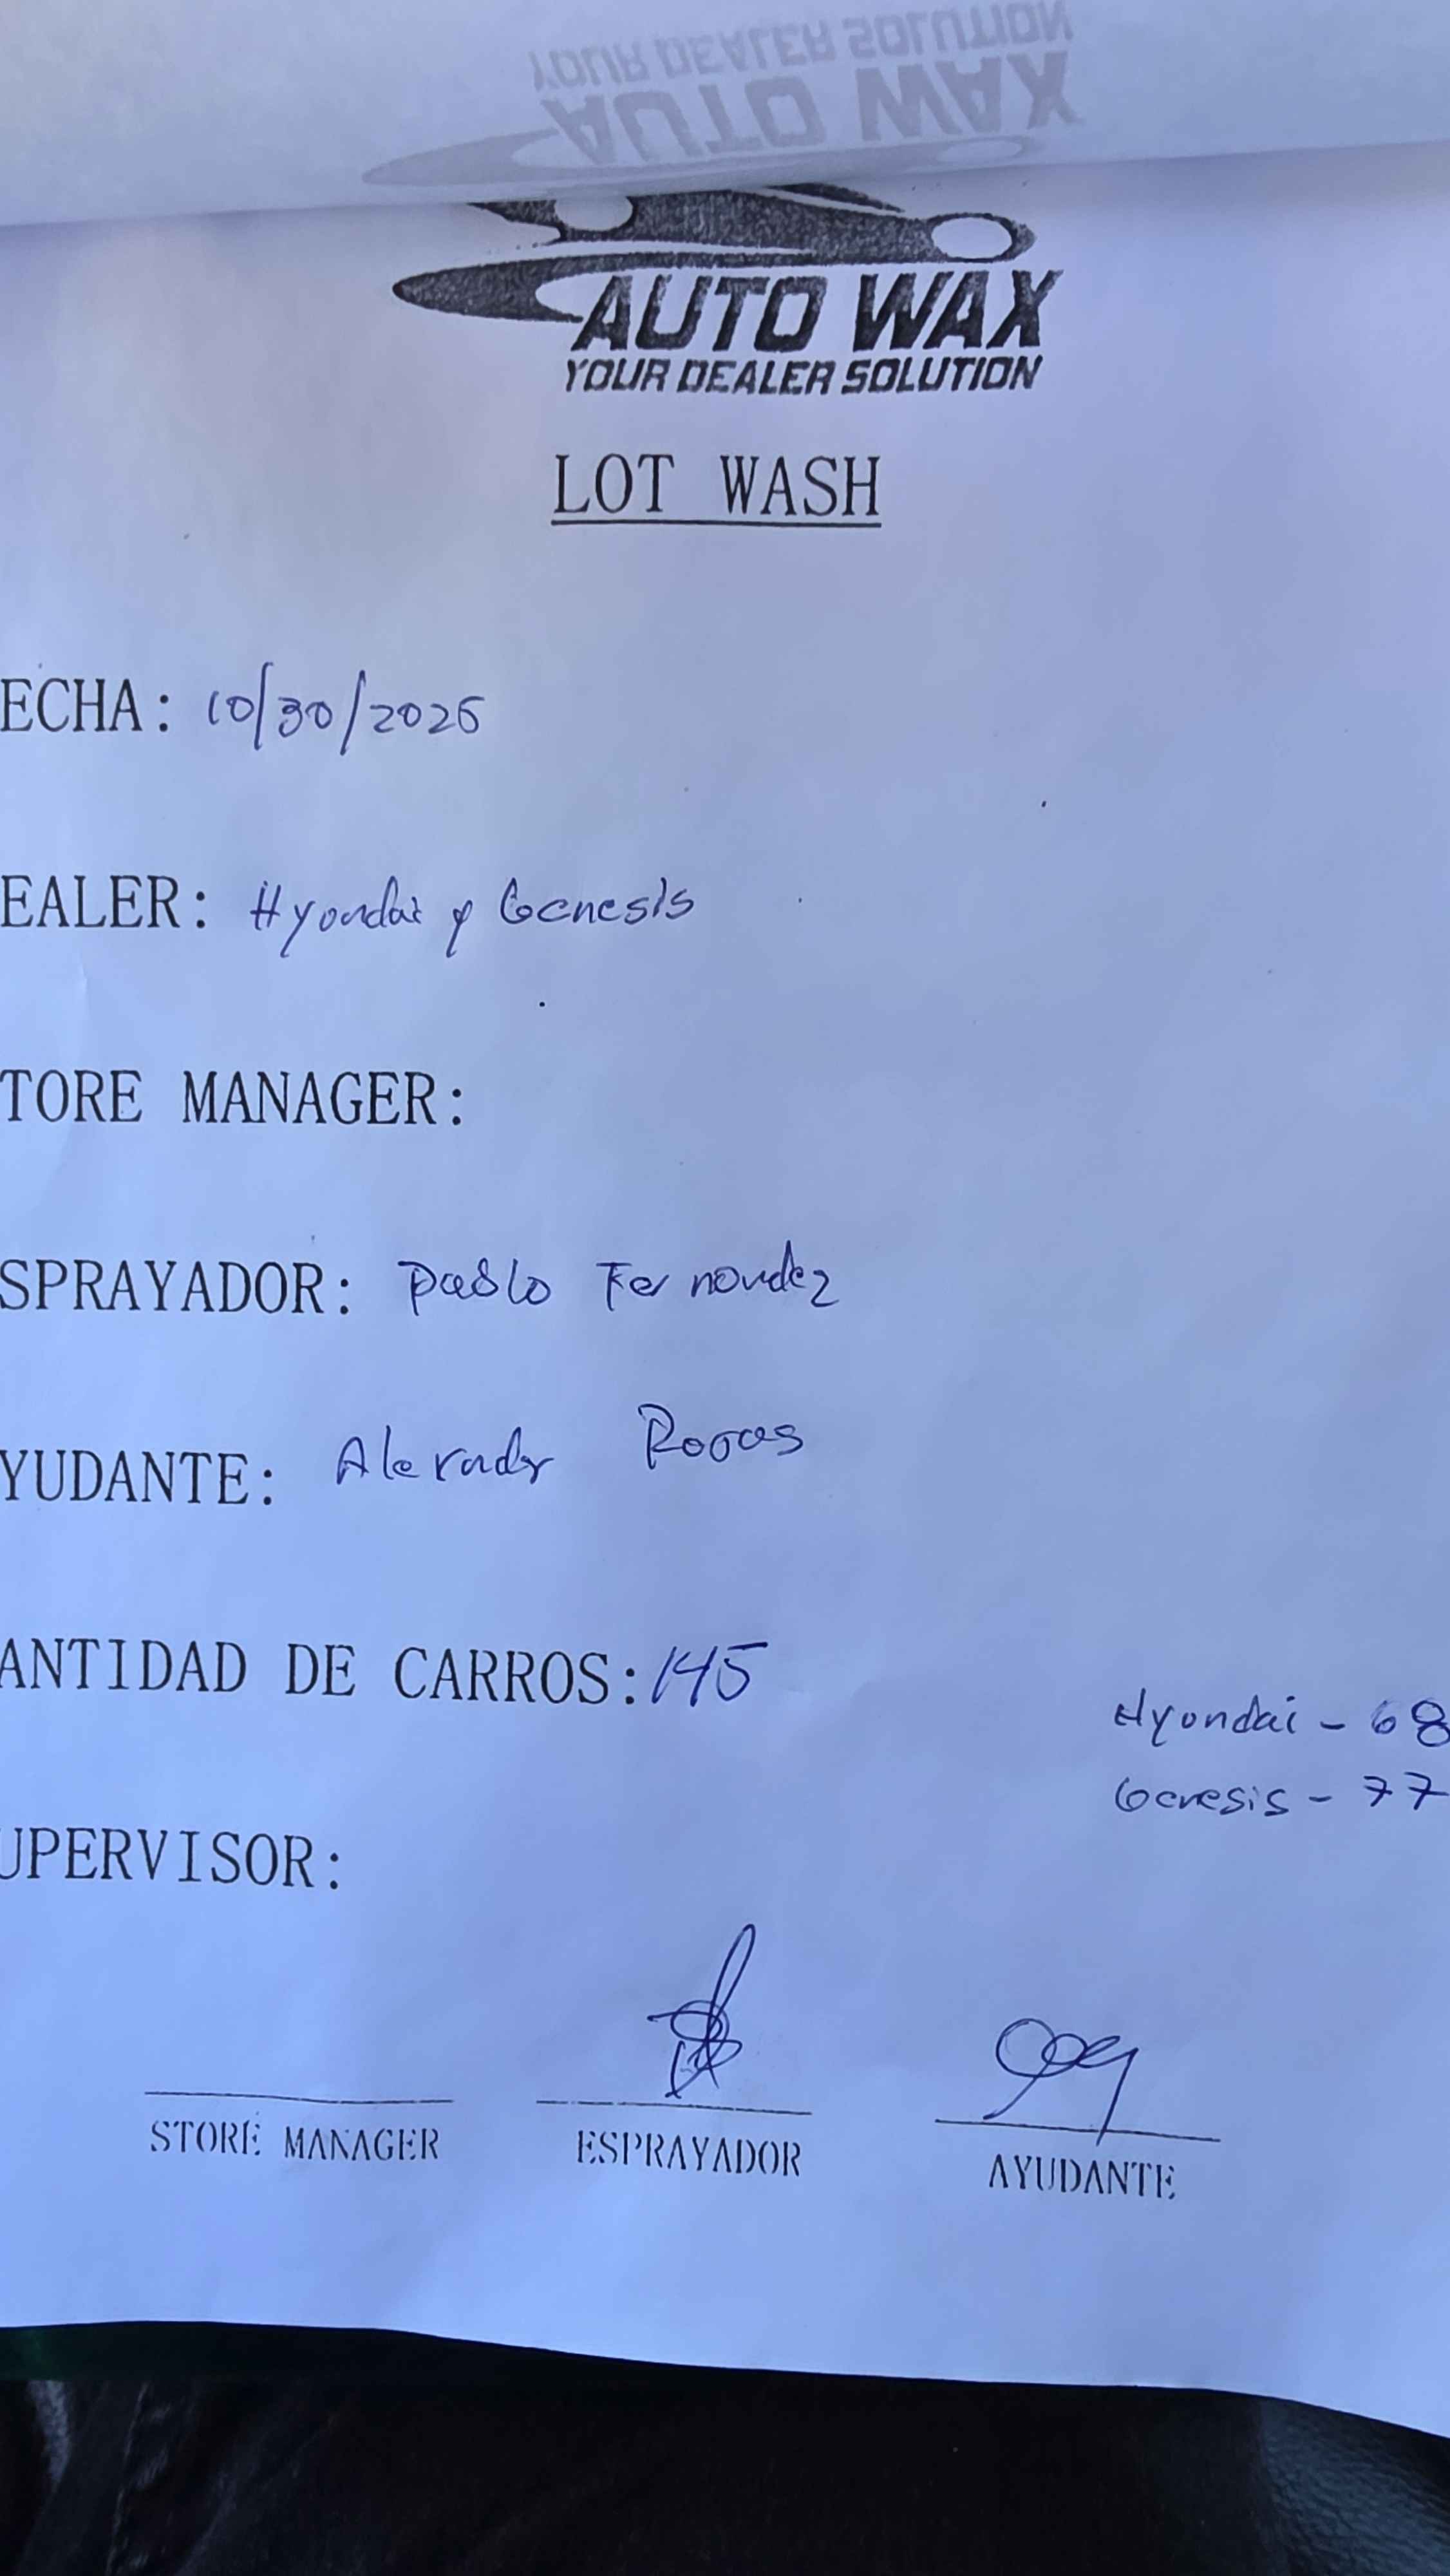 YOUR DEALER SOLUTION
AUTO WAX
AUTO WAX
YOUR DEALER SOLUTION
LOT WASH
ECHA: 10/30/2025
EALER: Hyondai y Genesis
TORE MANAGER:
SPRAYADOR: Pablo Fernandez
YUDANTE: Rojas
ANTIDAD DE CARROS: 145
Hyondai - 68
Genesis - 77
UPERVISOR:
STORE MANAGER ESPRAYADOR AYUDANTE